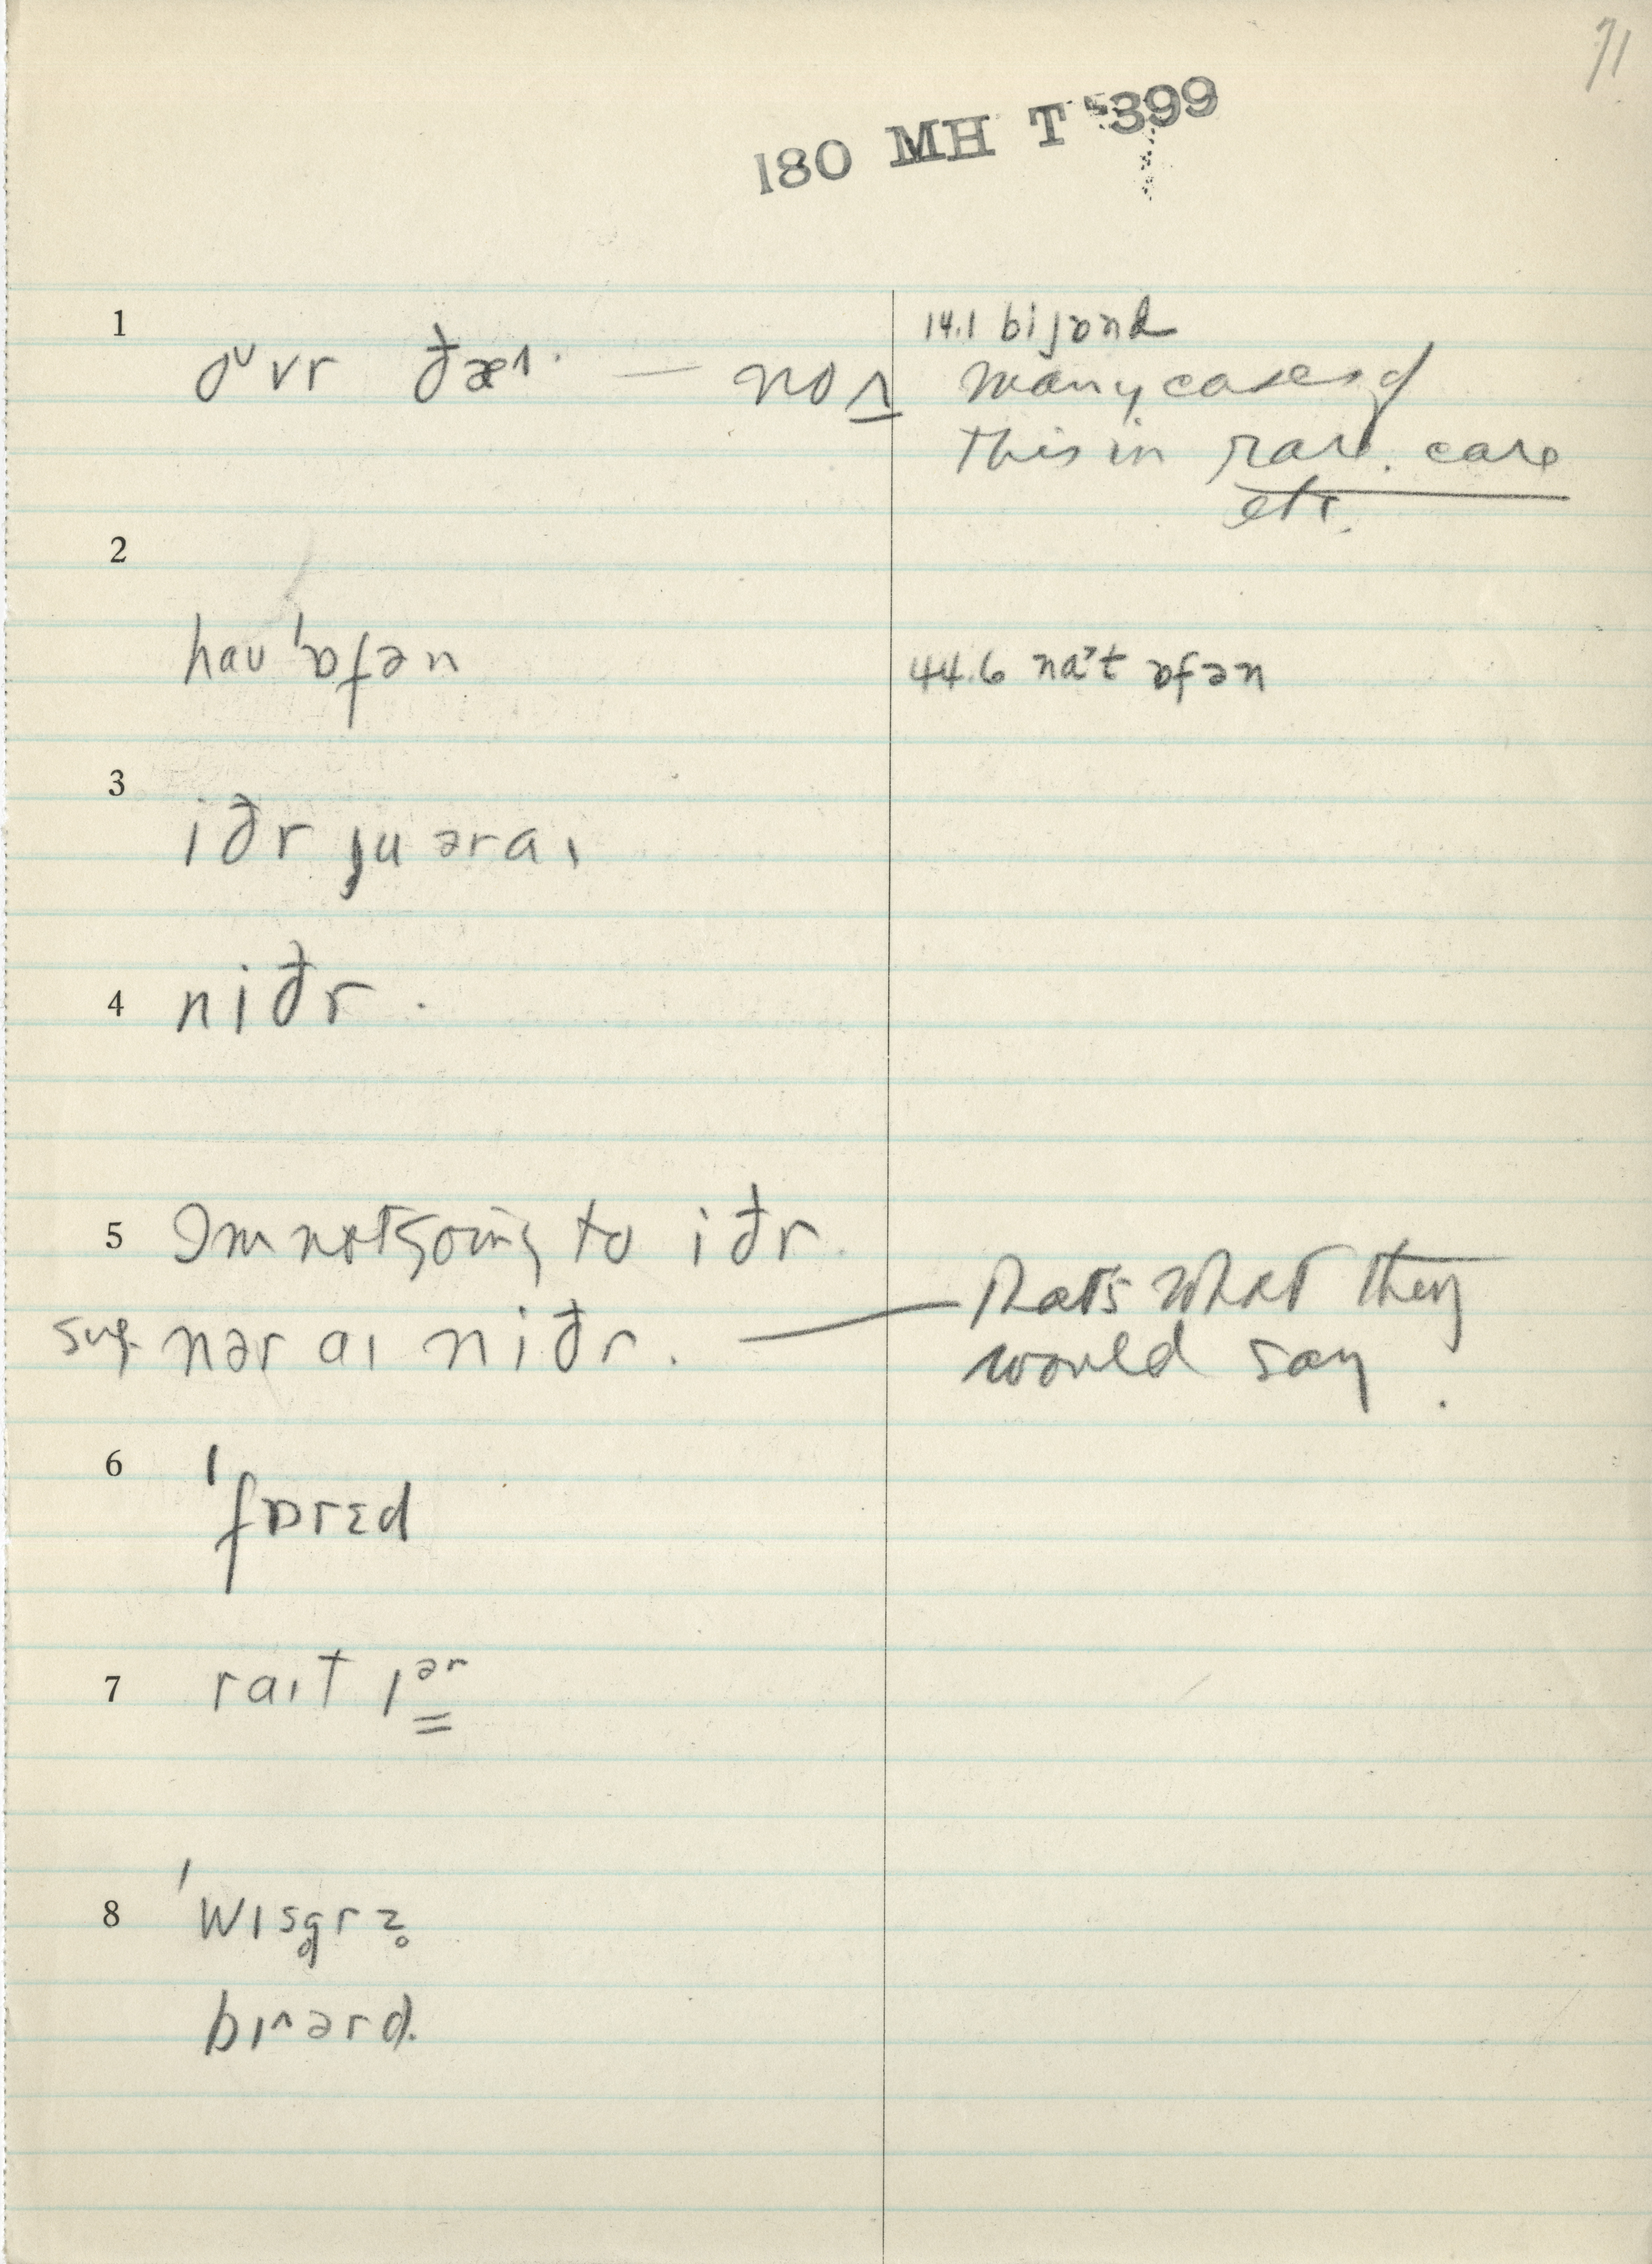 71
180 MH T 399
1
oᵘvr ðæɪ. — no ʌ
14.1 bijɒnd
many cases of
this in rare. care
etc.
2
hau ˈɒfən
44.6 naˀt ɒfən
3
iðr ju ər aɪ
4 niðr.
5 Im not going to iðr.
sug. nər aɪ niðr. — thats what they
would say.
6 ˈfɒrɛd
7 raɪt ɪᵊʳ
8 ˈwɪsg̥rz̥
bɪ^ərd.